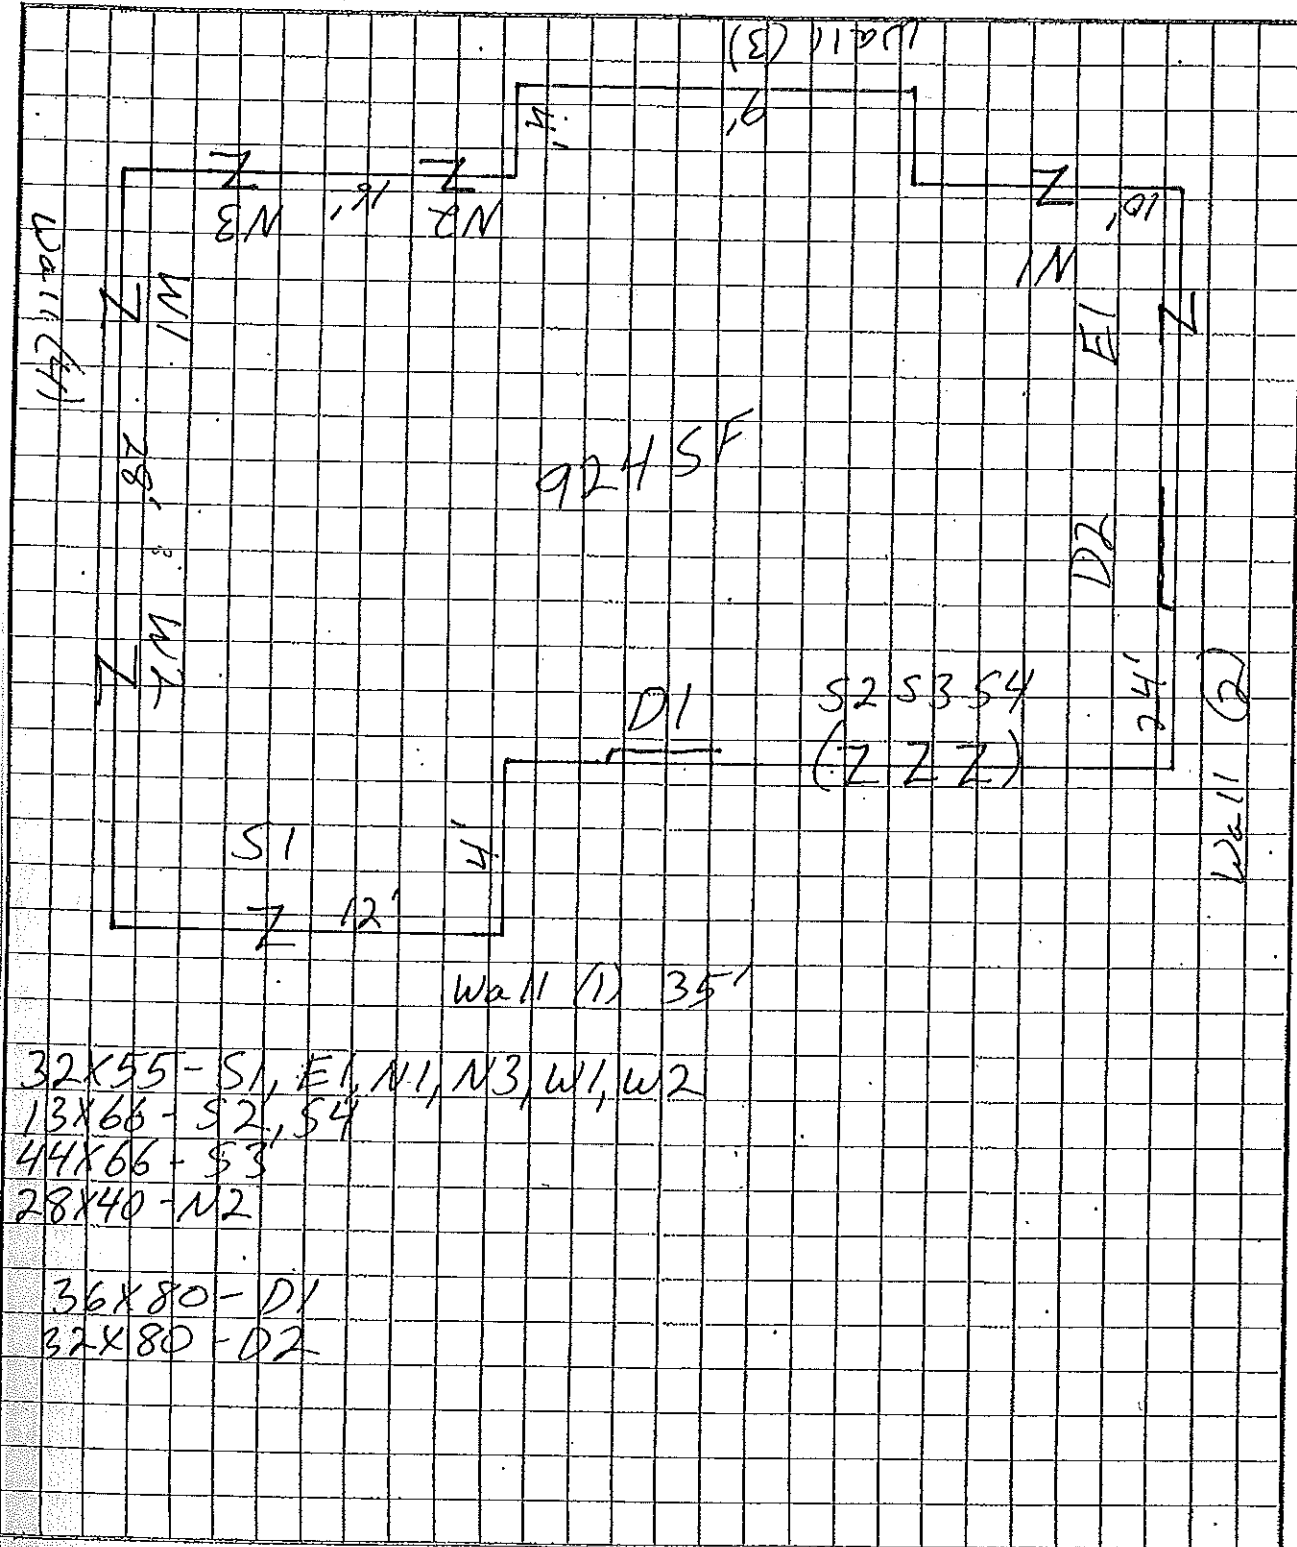 Wall (3)
9'
4'
N3
16'
N2
10'
N1
Wall (4)
W1
28'
W2
E1
924 SF
D2
24'
Wall (2)
D1
S2 S3 S4
S1
4'
12'
Wall (1) 35'
32X55 - S1, E1, N1, N3, W1, W2
13X66 - S2, S4
44X66 - S3
28X40 - N2
36X80 - D1
32X80 - D2